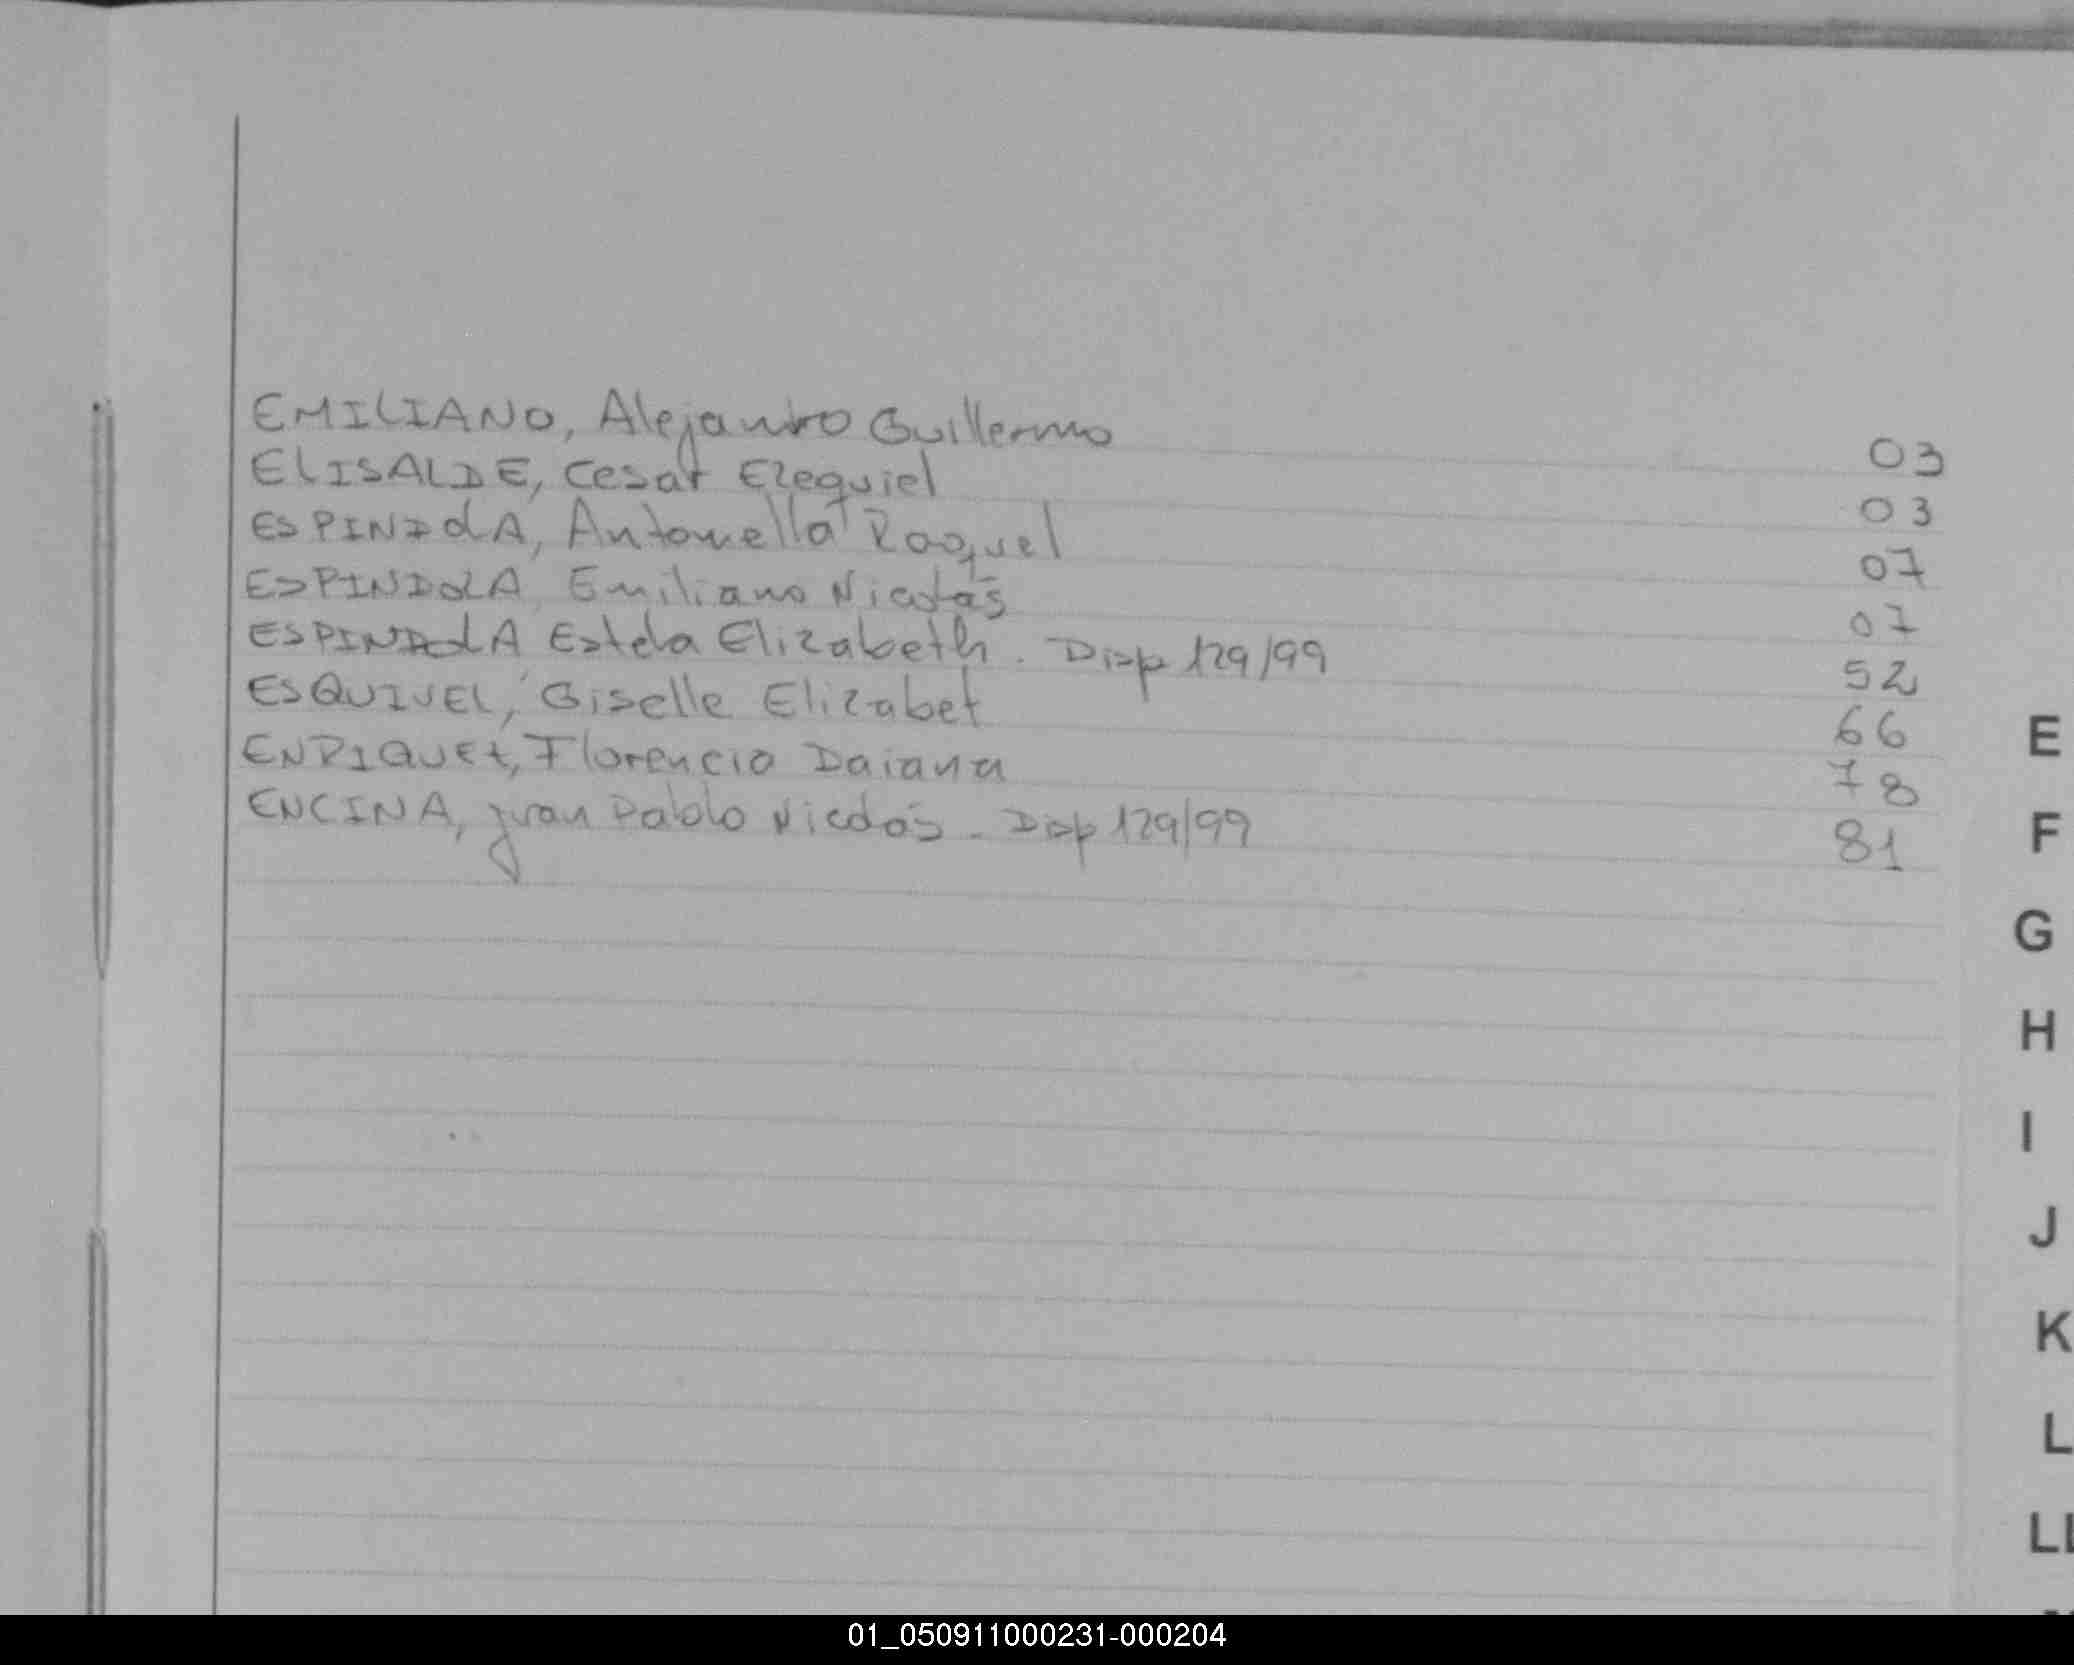 EMILIANO, Alejandro Guillermo 03
ELISALDE, Cesar Ezequiel 03
ESPINDOLA, Antonella Raquel 07
ESPINDOLA, Emiliano Nicolás 07
ESPINDOLA Estela Elizabeth. Disp 129/99 52
ESQUIVEL, Giselle Elizabet 66
ENRIQUEZ, Florencia Daiana 78
ENCINA, Juan Pablo Nicolás - Disp 129/99 81
E
F
G
H
I
J
K
L
LL
01_050911000231-000204